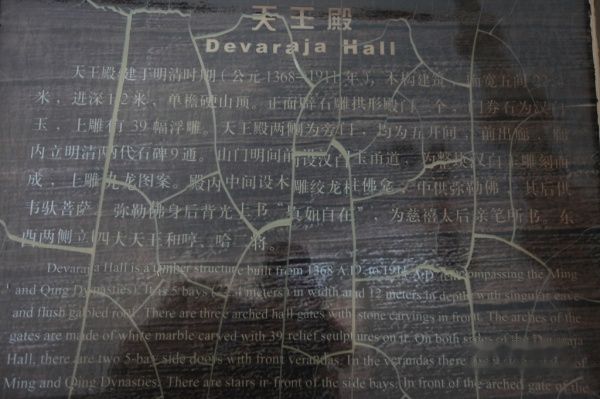 天王殿
Devaraja Hall
天王殿 建于明清时期（公元1368-1911年），木构建筑，面宽五间22.
米，进深12米，单檐硬山顶。正面辟石雕拱形殿门三个，门券石为汉白
玉，上雕有39幅浮雕。天王殿两侧为旁门，均为五开间，前出廊，廊
内立明清两代石碑9通。山门明间前设汉白玉甬道，为整块汉白玉雕刻而
成，上雕九龙图案。殿内中间设木雕绞龙柱佛龛，中供弥勒佛，其后供
韦驮菩萨。弥勒佛身后背光上书“真如自在”，为慈禧太后亲笔所书。东
西两侧立四大天王和哼、哈二将。
Devaraja Hall is a timber structure built from 1368 A.D. to 1911 A.D. (encompassing the Ming
and Qing Dynasties). It is 5 bays (22. meters) in width and 12 meters in depth with singular eave
and flush gabled roof. There are three arched hall gates with stone carvings in front. The arches of the
gates are made of white marble carved with 39 relief sculptures on it. On both sides of the Devaraja
Hall, there are two 5-bay side doors with front verandas. In the verandas there are of
Ming and Qing Dynasties. There are stairs in front of the side bays. In front of the arched gate of the